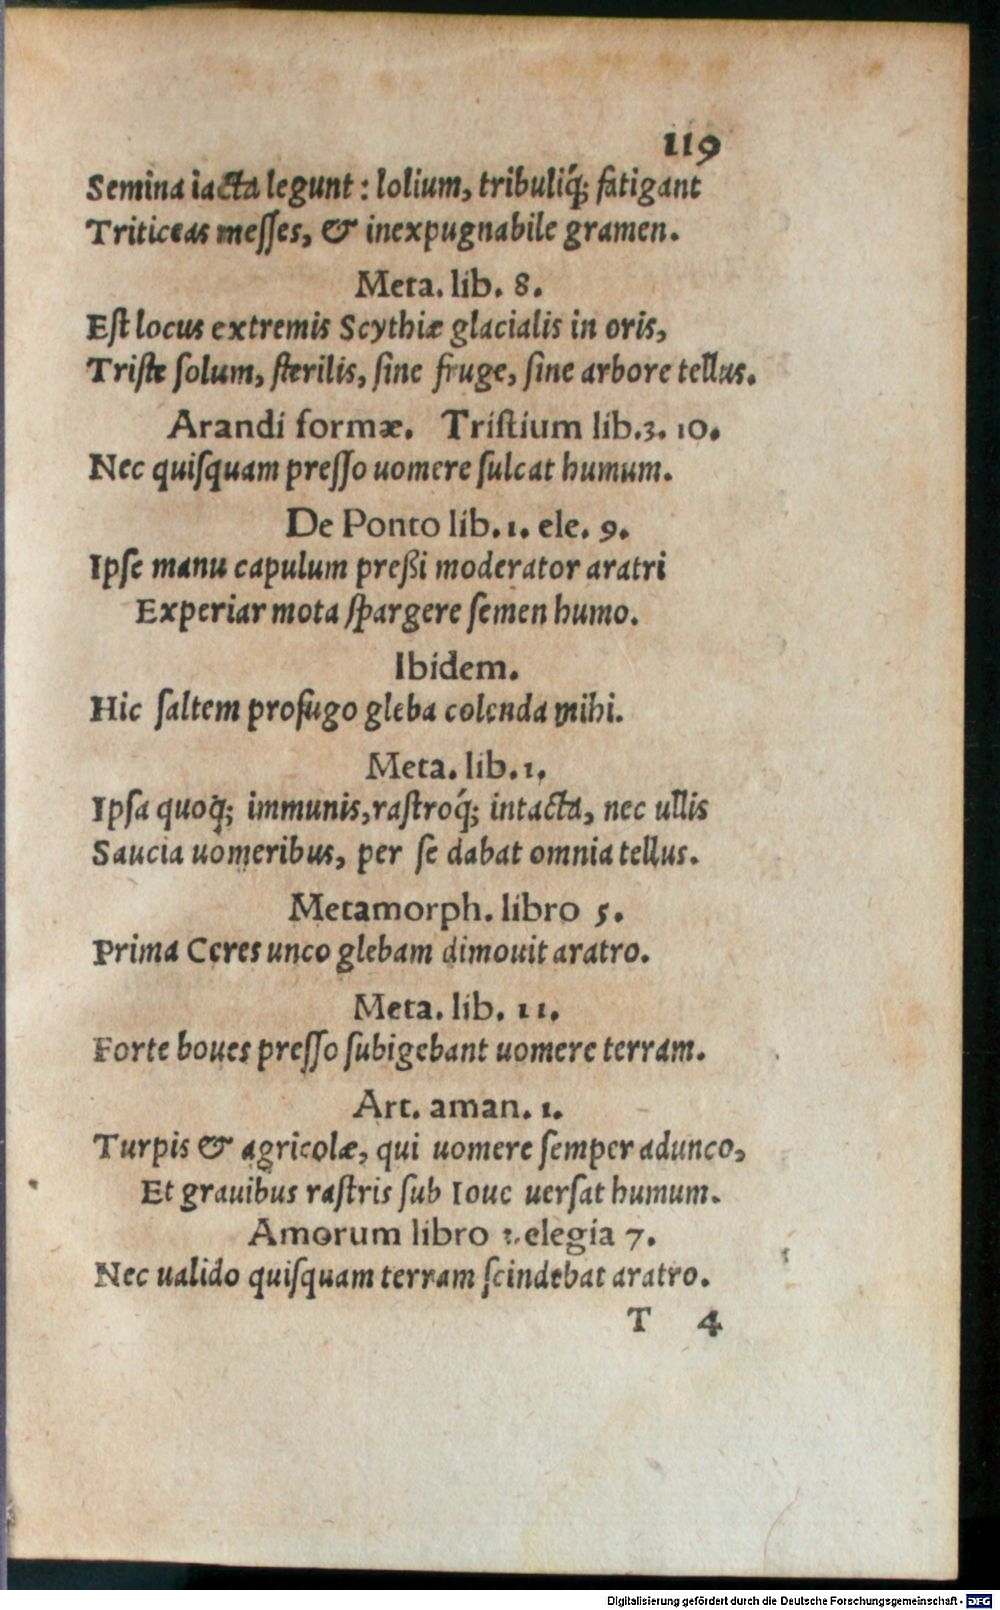 119
Semina iacta legunt: lolium, tribuliq́; fatigant
Triticeas meſſes, & inexpugnabile gramen.
Meta. lib. 8.
Eſt locus extremis Scythiæ glacialis in oris,
Triſte ſolum, ſterilis, ſine fruge, ſine arbore tellus.
Arandi formæ. Triſtium lib.3. 10.
Nec quiſquam preſſo uomere ſulcat humum.
De Ponto lib. 1. ele. 9.
Ipſe manu capulum preßi moderator aratri
Experiar mota ſpargere ſemen humo.
Ibidem.
Hic ſaltem profugo gleba colenda mihi.
Meta. lib. 1.
Ipſa quoq; immunis, raſtroq́; intacta, nec ullis
Saucia uomeribus, per ſe dabat omnia tellus.
Metamorph. libro 5.
Prima Ceres unco glebam dimouit aratro.
Meta. lib. 11.
Forte boues preſſo ſubigebant uomere terram.
Art. aman. 1.
Turpis & agricolæ, qui uomere ſemper adunco,
Et grauibus raſtris ſub Ioue uerſat humum.
Amorum libro elegia 7.
Nec ualido quiſquam terram ſcindebat aratro.
T 4
Digitalisierung gefördert durch die Deutsche Forschungsgemeinschaft - DFG